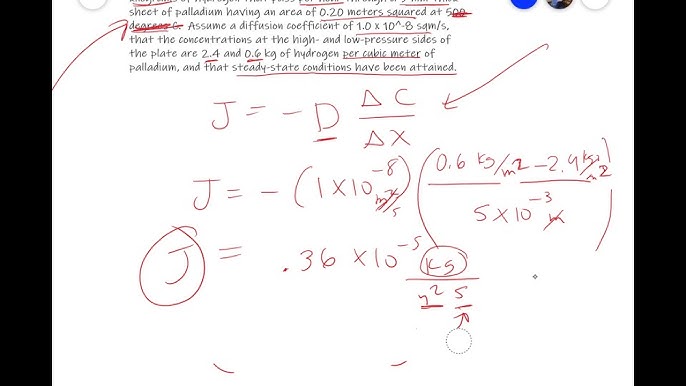 of hydrogen that pass per hour through a
sheet of palladium having an area of 0.20 meters squared at 500
degrees C. Assume a diffusion coefficient of 1.0 x 10^-8 sqm/s,
that the concentrations at the high- and low-pressure sides of
the plate are 2.4 and 0.6 kg of hydrogen per cubic meter of
palladium, and that steady-state conditions have been attained.
J = - D ΔC
ΔX
J = - (1 × 10⁻⁸ m²/s) (0.6 kg/m2 - 2.4 kg/m2)
5 × 10⁻³ m
J = .36 × 10⁻⁵ kg
m² s